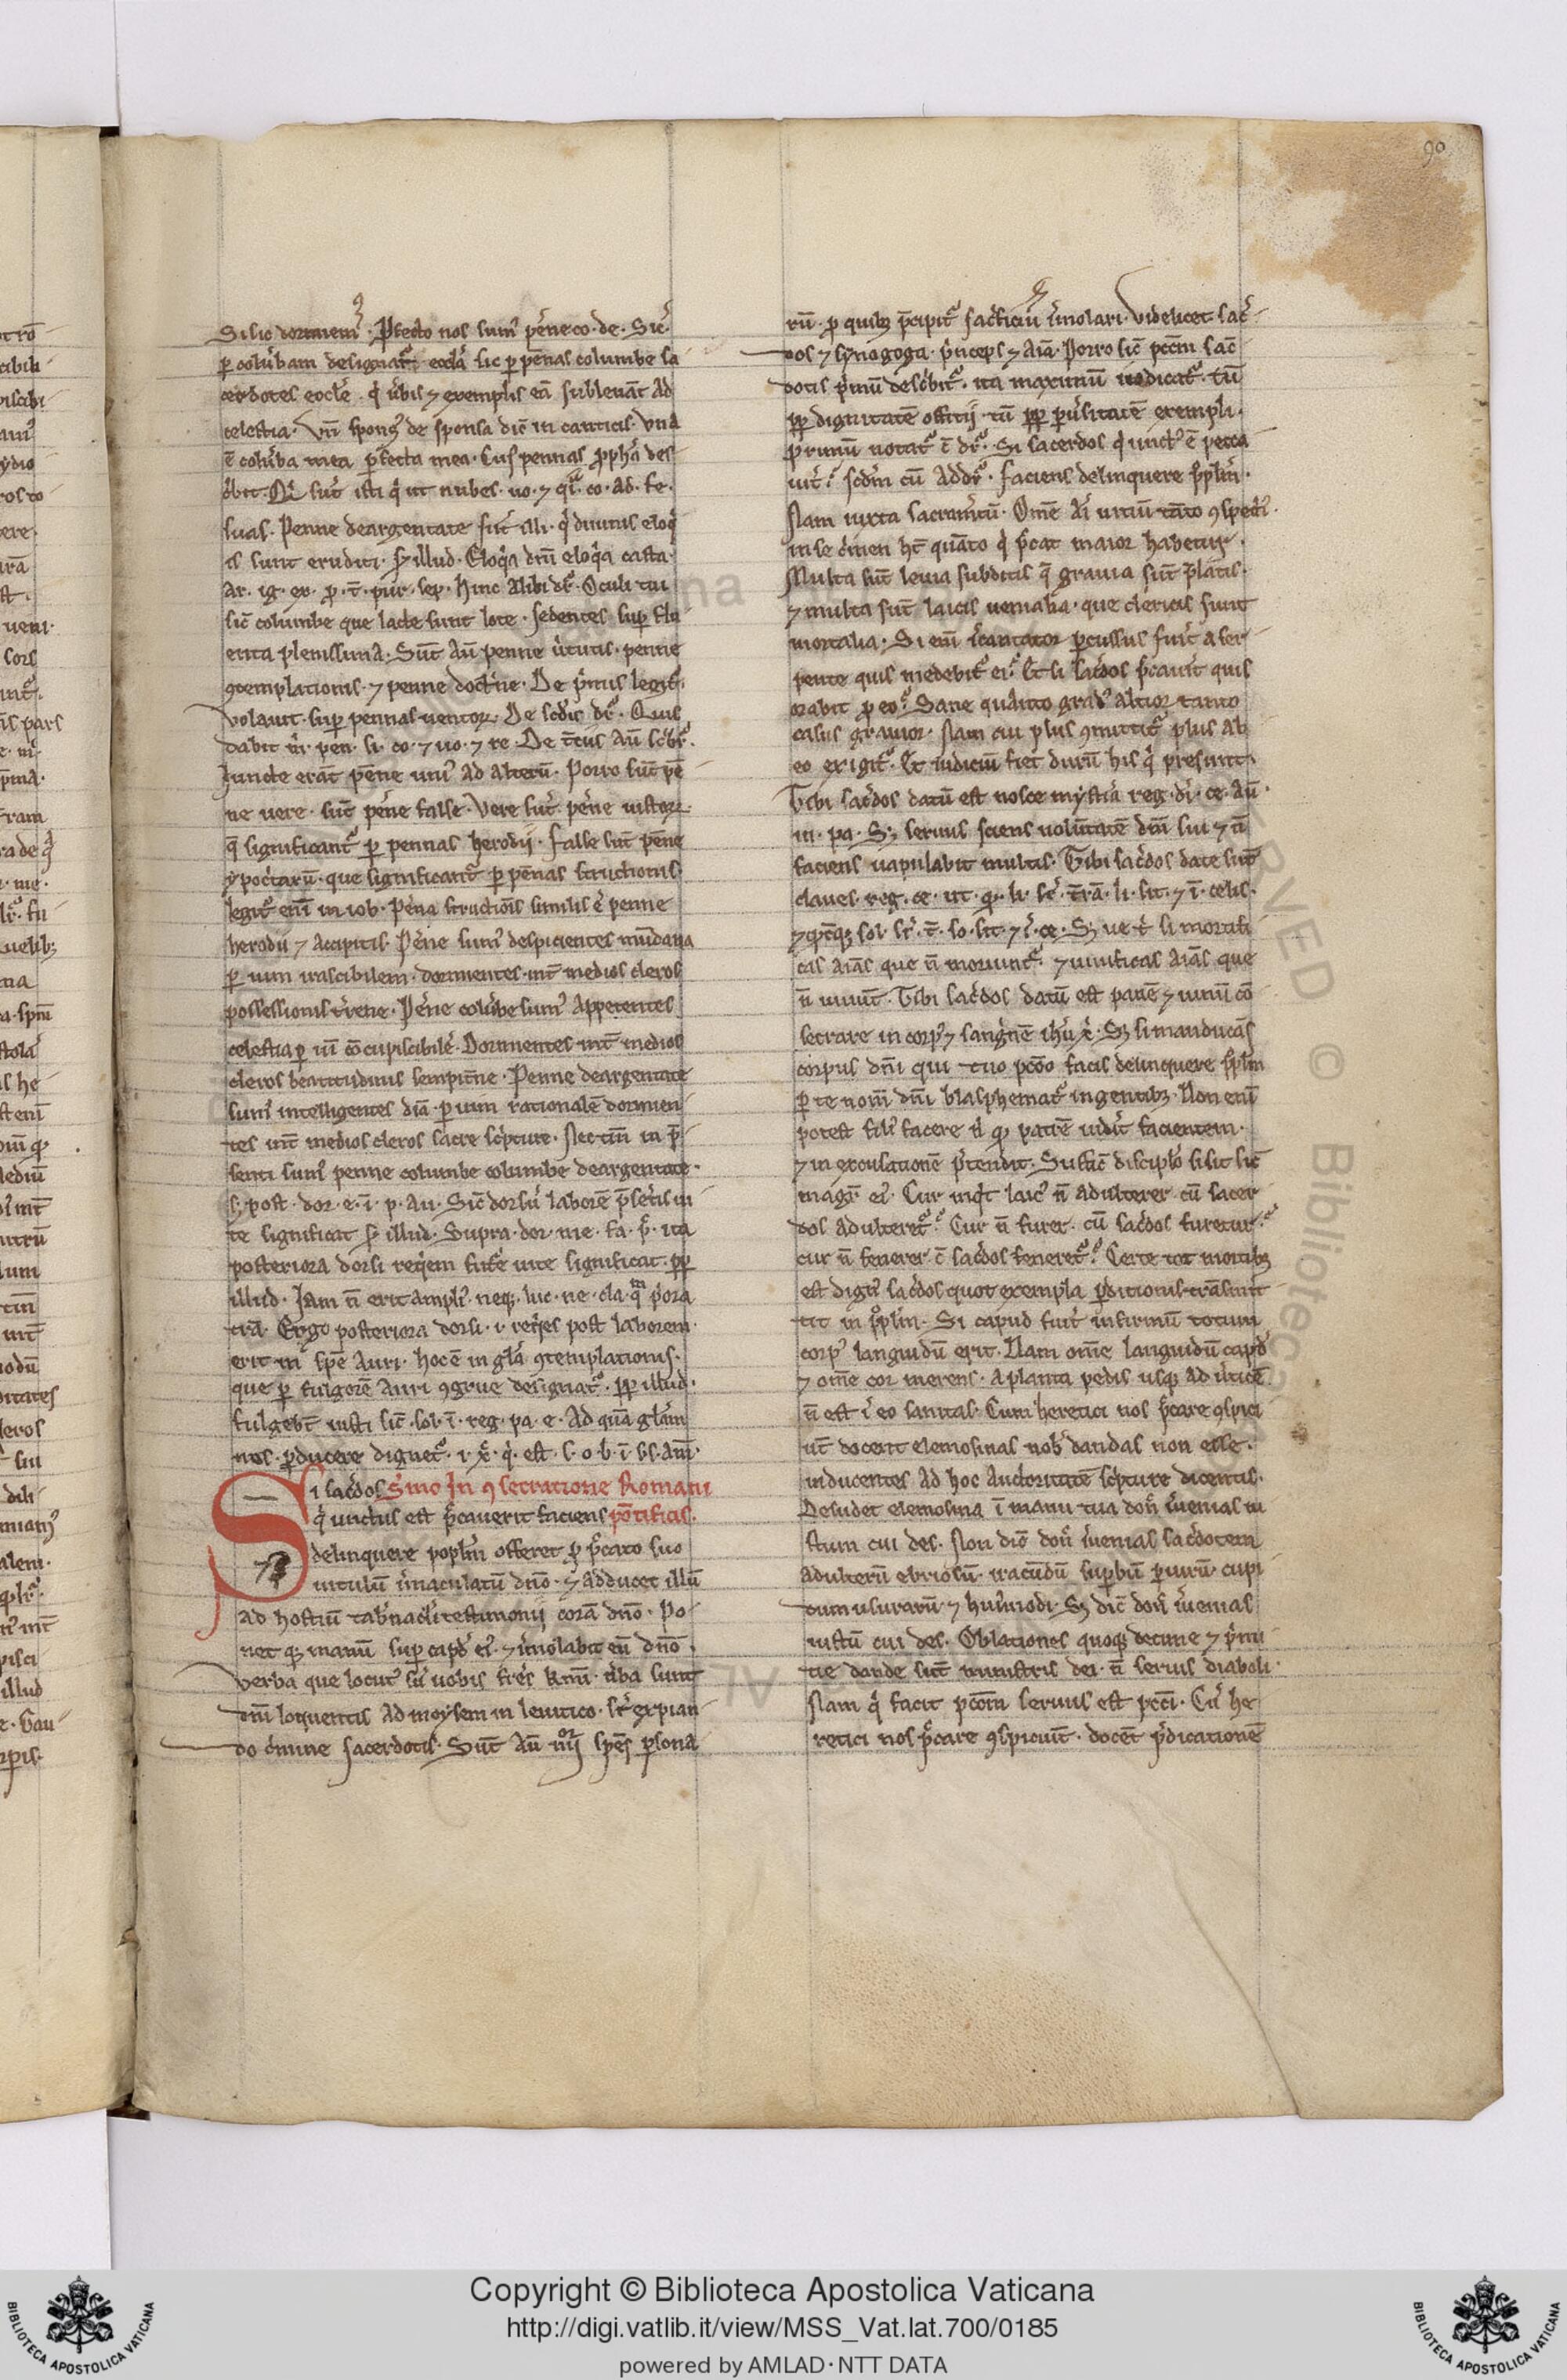 90
Si sic dormiem᷒. Ꝑfecto nos sum᷒ pēne co. de. Sic̄
ꝑ colūbam designat᷑ eccl̄a sic ꝑ pēnas columbe sa
cerdotes eccl̄e. q̇ ūbis ⁊ exemplis eā subleuāt ad
celestia. Vn̄ spons᷒ de sponsa dic̄ in canticis. Vna
ē colūba mea ꝑfecta mea. Cuꝰ pennas ꝓph̄a des
c̍bit. Qͥ sūt isti q̇ ut nubes. uo. ⁊ qͣ. co. ad. fe.
suas. Penne deargentate sūt illi. q̇ diuinis eloq̇
is sunt eruditi. s̄ illud. Eloq̇a dn̄i eloq̇a casta.
Ar. ig. ex. ꝓ. t̄. pur. sep. hinc alibi dr᷑. Oculi tui
sic̄ columbe que lacte sunt lote. sedentes suꝑ flu
enta plenissima. Sūt au᷑ penne ūtutis. penne
ꝯtemplationis. ⁊ penne doctrine. De p̍mis legit᷑.
Volauit. suꝑ pennas uentoꝝ. De scd̄is dr᷑. Quis
dabit m̍. pen. si. co. ⁊ uo. ⁊ re. De t̄ciis au᷑ sc̍br᷑.
Juncte erāt pēne uni᷒ ad alterū. Porro sūt pē
ne uere. sūt pēne false. Vere sūt pēne iustoꝝ
q̄ significant᷑ ꝑ pennas herodij. false sūt pēne
ypoc̍tarū. que significant᷑ ꝑ pēnas structionis.
legit᷑ eni᷑ in iob. Pēna structiōis similis ē penne
herodii ⁊ accipitis. Pēne sum᷒ despicientes mūdana
ꝑ uim irascibilem. dormientes. int̄ medios cleros
possessionis t̄rene. Pēne colūbe sum᷒ appetentes
celestia ꝑ uī cōcupiscibilē. Dormientes int̄ medios
cleros beatitudinis sempit̄ne. Penne deargentate
sum᷒ intelligentes diā. ꝑ uim rationalē dormien
tes int̄ medios cleros sacre sc̍pture. Nec tm̄ in p̄
senti sum᷒ penne columbe columbe deargentate.
s; post. dor. e. ī. p. au. Sic̄ dorsū laborē p̄sētis ui
te significat s̄ illud. Supra. dor. me. fa. p̍. ita
posteriora dorsi req̇em fut̄e uite significat. ꝓꝑ
illud. Jam n̄ erit ampli᷒. neqꝫ. luc. ne. cla. qm̄ p̍ora
trā. Ergo posteriora dorsi. i. req̇es post laborem.
erit in spē auri. hoc ē in gl̄a ꝯtemplationis.
que ꝑ fulgorē auri ꝯgrue designat᷑. ꝓꝑ illud.
fulgebt̄ iusti sic̄. sol. ī. reg. pa. e. Ad quā glām
nos. ꝑducere dignet᷑. i. x̄. q̇. est. s. o. b. ī. sl. am̄.
Si sac̍dos Smo Jn ꝯsecratione Romani
q̇ unctus est p̄cauerit faciens pōtificis.
delinquere popl̄m offeret ꝓ p̄cato suo
uitulū īmaculatū dn̄o. ⁊ adducet illū
ad hostiū tab̄nacl̄i testimonij corā dn̄o. Po
net qꝫ manū suꝑ capđ ei᷒. ⁊ īmolabit eū dn̄o.
Verba que locut᷒ sū uobis frēs kmī. ūba sunt
dn̄i loquentis ad moysem in leuitico. sr̄ expian
do c̍mine sacerdotis. Sūt au᷑ iiijor sp̄es ꝑsona
rū. ꝓ quibꝫ p̄cipit᷑ sac̍ficiū īmolari. videlicet sac̍
dos ⁊ synagoga. p̍nceps ⁊ aīa. Porro sic̄ pctm̄ sac̄
dotis p̍mū desc̍bit᷑. ita maximū iudicat᷑. tū
ꝓꝑ dignitatē officij. tū ꝓꝑ ꝑūsitatē exempli.
primū notat᷑ c̄ dr᷑. Si sacerdos q̇ unct᷒ ē pecca
uit᷑. scd̄m cū addr᷑. faciens delinquere ppl̄m.
Nam iuxta sacram̄tū. Omē ai᷑ uitiū tāto ꝯspecti᷒.
in se c̍men ht̄ quāto q̇ p̄cat maior habetur.
Multa sūt leuia subditis q̄ grauia sūt p̄latis.
⁊ multa sūt laicis uenialia. que clericis sunt
mortalia. Si eni᷑ īcantator ꝑcussus fuit᷑ a ser
pente quis medebit᷑ ei᷑. Et si sac̍dos p̄cauit᷑ quis
orabit ꝓ eo᷑. Sane quāto grad᷒ altior tanto
casus grauior. Nam cui plus ꝯmittit᷑ plus ab
eo exigit᷑. Et iudiciū fiet durū his q̇ presunt.
Tibi sac̍dos datū est nosce mystiā reg. di. ce. au᷑.
in. pa. Sꝫ seruus sciens uolūtatē dn̄i sui ⁊ n̄
faciens uapulabit multis. Tibi sac̍dos date sūt
claues. reg. ce. ut. qꝫ. li. sr̄. t̄rā. li. sit. ⁊ ī. celis.
⁊ qcūqꝫ. sol. sr̄. t̄. so. sit. ⁊ ī. ce. Sꝫ ue t̍ si mortifi
cas aīas que n̄ moriunt᷑. ⁊ uiuificas aīas que
n̄ uiuūt. Tibi sac̍dos datū est panē ⁊ uinū cō
secrare in corp᷒ ⁊ sanguinē ih̄u x̄. Sꝫ si manducās
corpus dn̄i qui tuo pctō facis delinquere ppl̄m
ꝑ te nom̄ dn̄i blasphemat᷑ in gentibꝫ. Non eni᷑
potest fili᷒ facere n̍ qꝫ patrē uid̍it facientem.
⁊ in excusationē p̄tendit. Sufficit discipl̄o si sit sic̄
magr̄ ei᷒. Cur inq̇t laic᷒ n̄ adulterer. cū sacer
dos adulteret᷑. Cur n̄ furer. cū sac̍dos furetur.
cur n̄ fenerer c̄ sac̍dos feneret᷑. Certe tot mortibꝫ
est dign᷒ sac̍dos quot exempla ꝑditionis trāsmit
tit in ppl̄m. Si capud fuit᷑ infirmū totum
corp᷒ languidū erit. Nam omē languidū capđ
⁊ omē cor merens. A planta pedis usqꝫ ad ūticē
n̄ est ī eo sanitas. Cum heretici nos p̄care ꝯspici
ūt docent elemosinas nob̄ dandas non esse.
inducentes ad hoc auctoritatē sc̍pture dicentis.
Desudet elemosina ī manu tua don̄ īuenias iu
stum cui des. Non dic̄ don̄ īuenias sac̍dotem
adulterū ebriosū. iracūdū suꝑbū ꝑiurū. cupi
dum usurarū. ⁊ hui᷒modi. Sꝫ dic̄ don̄ īuenias
iustū cui des. Oblationes quoqꝫ decime ⁊ p̍mi
tie dande sūt ministris dei. n̄ seruis diaboli.
Nam q̇ facit pctm̄ seruus est pcc̄i. Cū he
retici nos p̄care ꝯspiciūt. docēt p̄dicationē
Copyright © Biblioteca Apostolica Vaticana
http://digi.vatlib.it/view/MSS_Vat.lat.700/0185
powered by AMLAD·NTT DATA